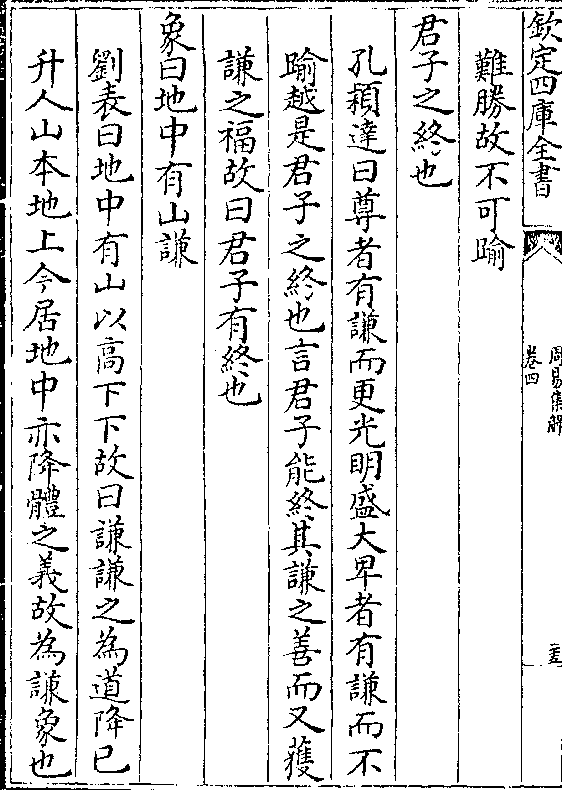 欽定四庫全書
周易集解
卷四
難勝故不可踰
君子之終也
孔穎達曰尊者有謙而更光明盛大卑者有謙而不
踰越是君子之終也言君子能終其謙之善而又獲
謙之福故曰君子有終也
象曰地中有山謙
劉表曰地中有山以高下下故曰謙謙之為道降已
升人山本地上今居地中亦降體之義故為謙象也